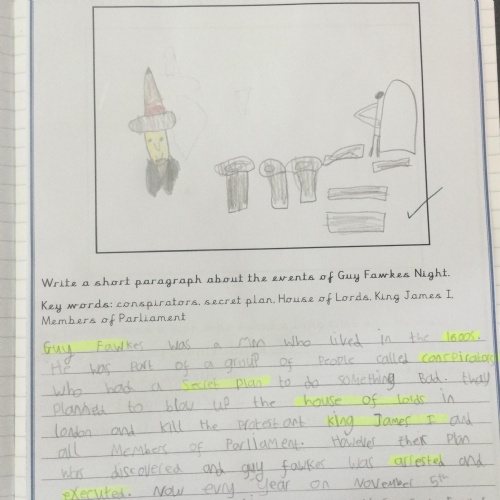 Write a short paragraph about the events of Guy Fawkes Night.
Key words: conspirators, secret plan, House of Lords, King James I,
Members of Parliament
Guy Fawkes was a man who lived in the 1600s.
He was part of a group of people called conspirators
who had a secret plan to do something Bad. they
planned to blow up the house of lords in
london and kill the protestant king James I and
all Members of Parliament. However their plan
was discovered and guy fawkes was arrested and
executed. Now evry year on November 5th